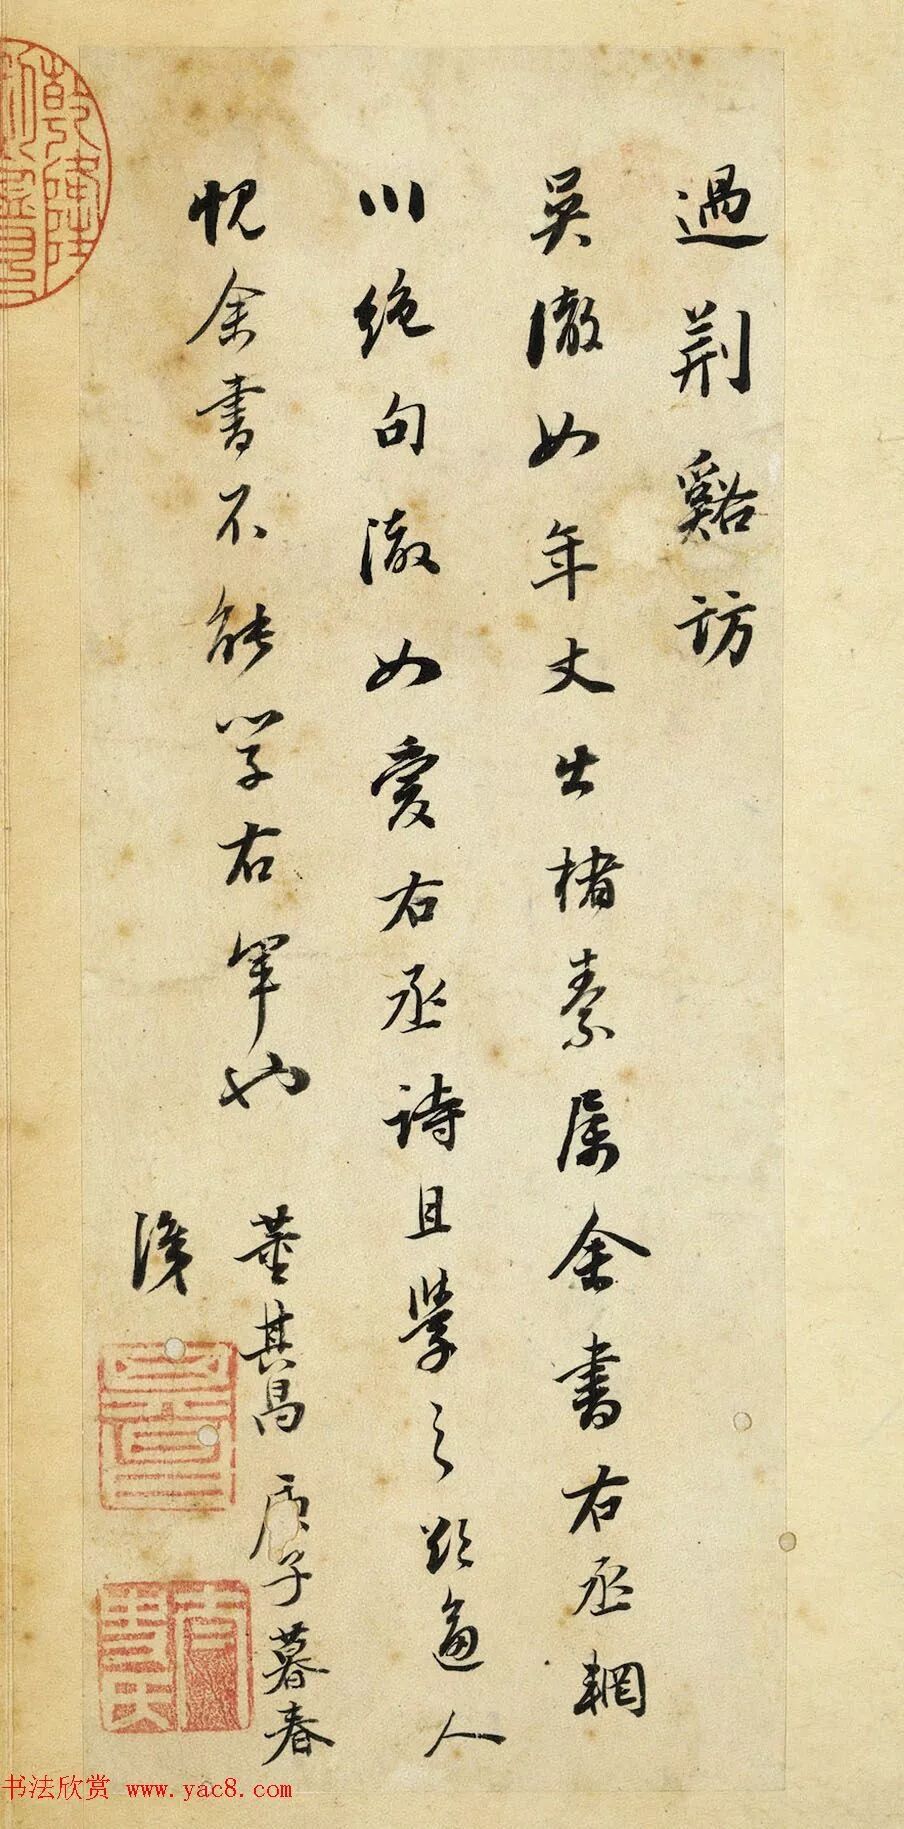 過荆谿訪
吴澈如年丈出楮素属余書右丞輞
川絶句澈如愛右丞詩且學之欲逼人
愧余書不能学右軍也
董其昌庚子暮春
識
乾隆
書法欣赏 www.yac8.com